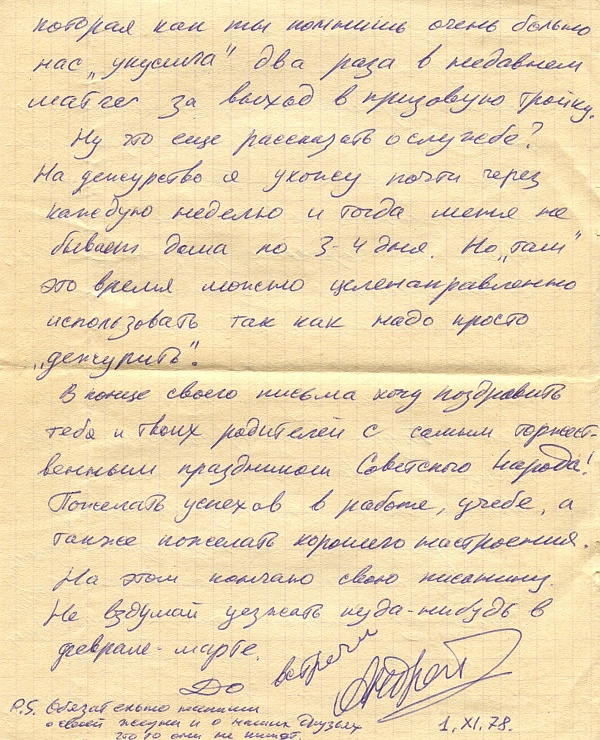 которая как ты помнишь очень больно
нас „укусила" два раза в недавнем
матче за выход в призовую тройку.
Ну что еще рассказать о службе?
На дежурство я ухожу почти через
каждую неделю и тогда меня не
бывает дома по 3-4 дня. Но „там"
это время можно целенаправленно
использовать так как надо просто
„дежурить".
В конце своего письма хочу поздравить
тебя и твоих родителей с самым торжест-
венным праздником Советского народа!
Пожелать успехов в работе, учебе, а
также пожелать хорошего настроения.
На этом кончаю свою писанину.
Не вздумай уезжать куда-нибудь в
феврале-марте.
До встречи
Андрей
P.S. Обязательно напиши
о своей жизни и о наших друзьях
что-то они не пишут.
1. XI. 78.